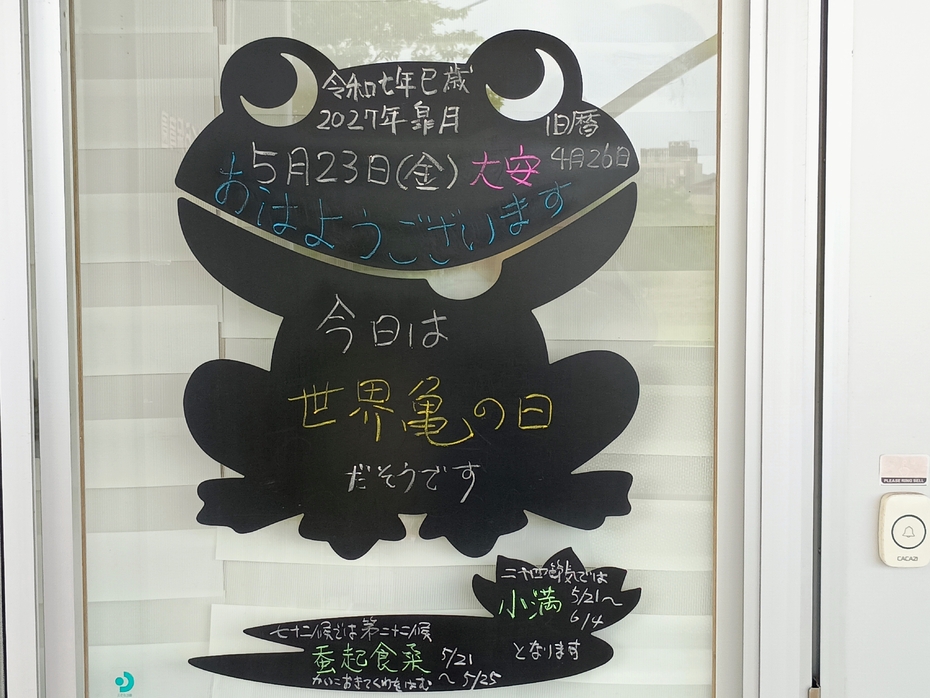 令和七年巳歳
2027年皐月
旧暦
4月26日
5月23日(金) 大安
おはようございます
今日は
世界亀の日
だそうです
二十四節気では
小満 5/21〜
6/4
となります
七十二候では第二十二候
蚕起食桑 5/21
〜5/25
かいこおきてくわをはむ
PLEASE RING BELL
CACAZI